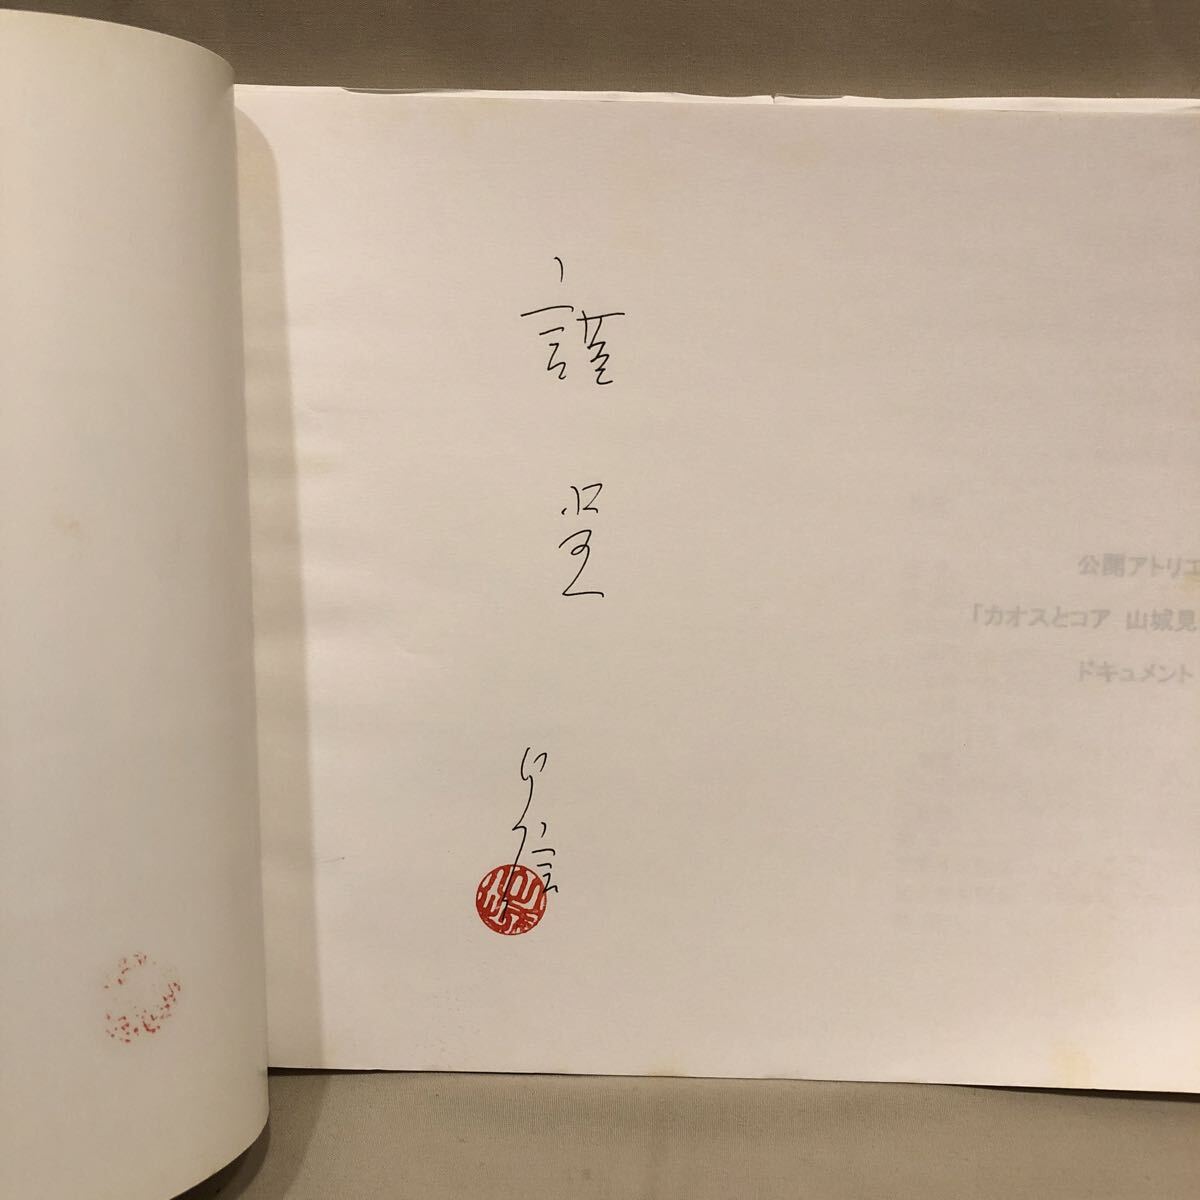 謹呈
見信
公開アトリエ
「カオスとコア 山城見
ドキュメント